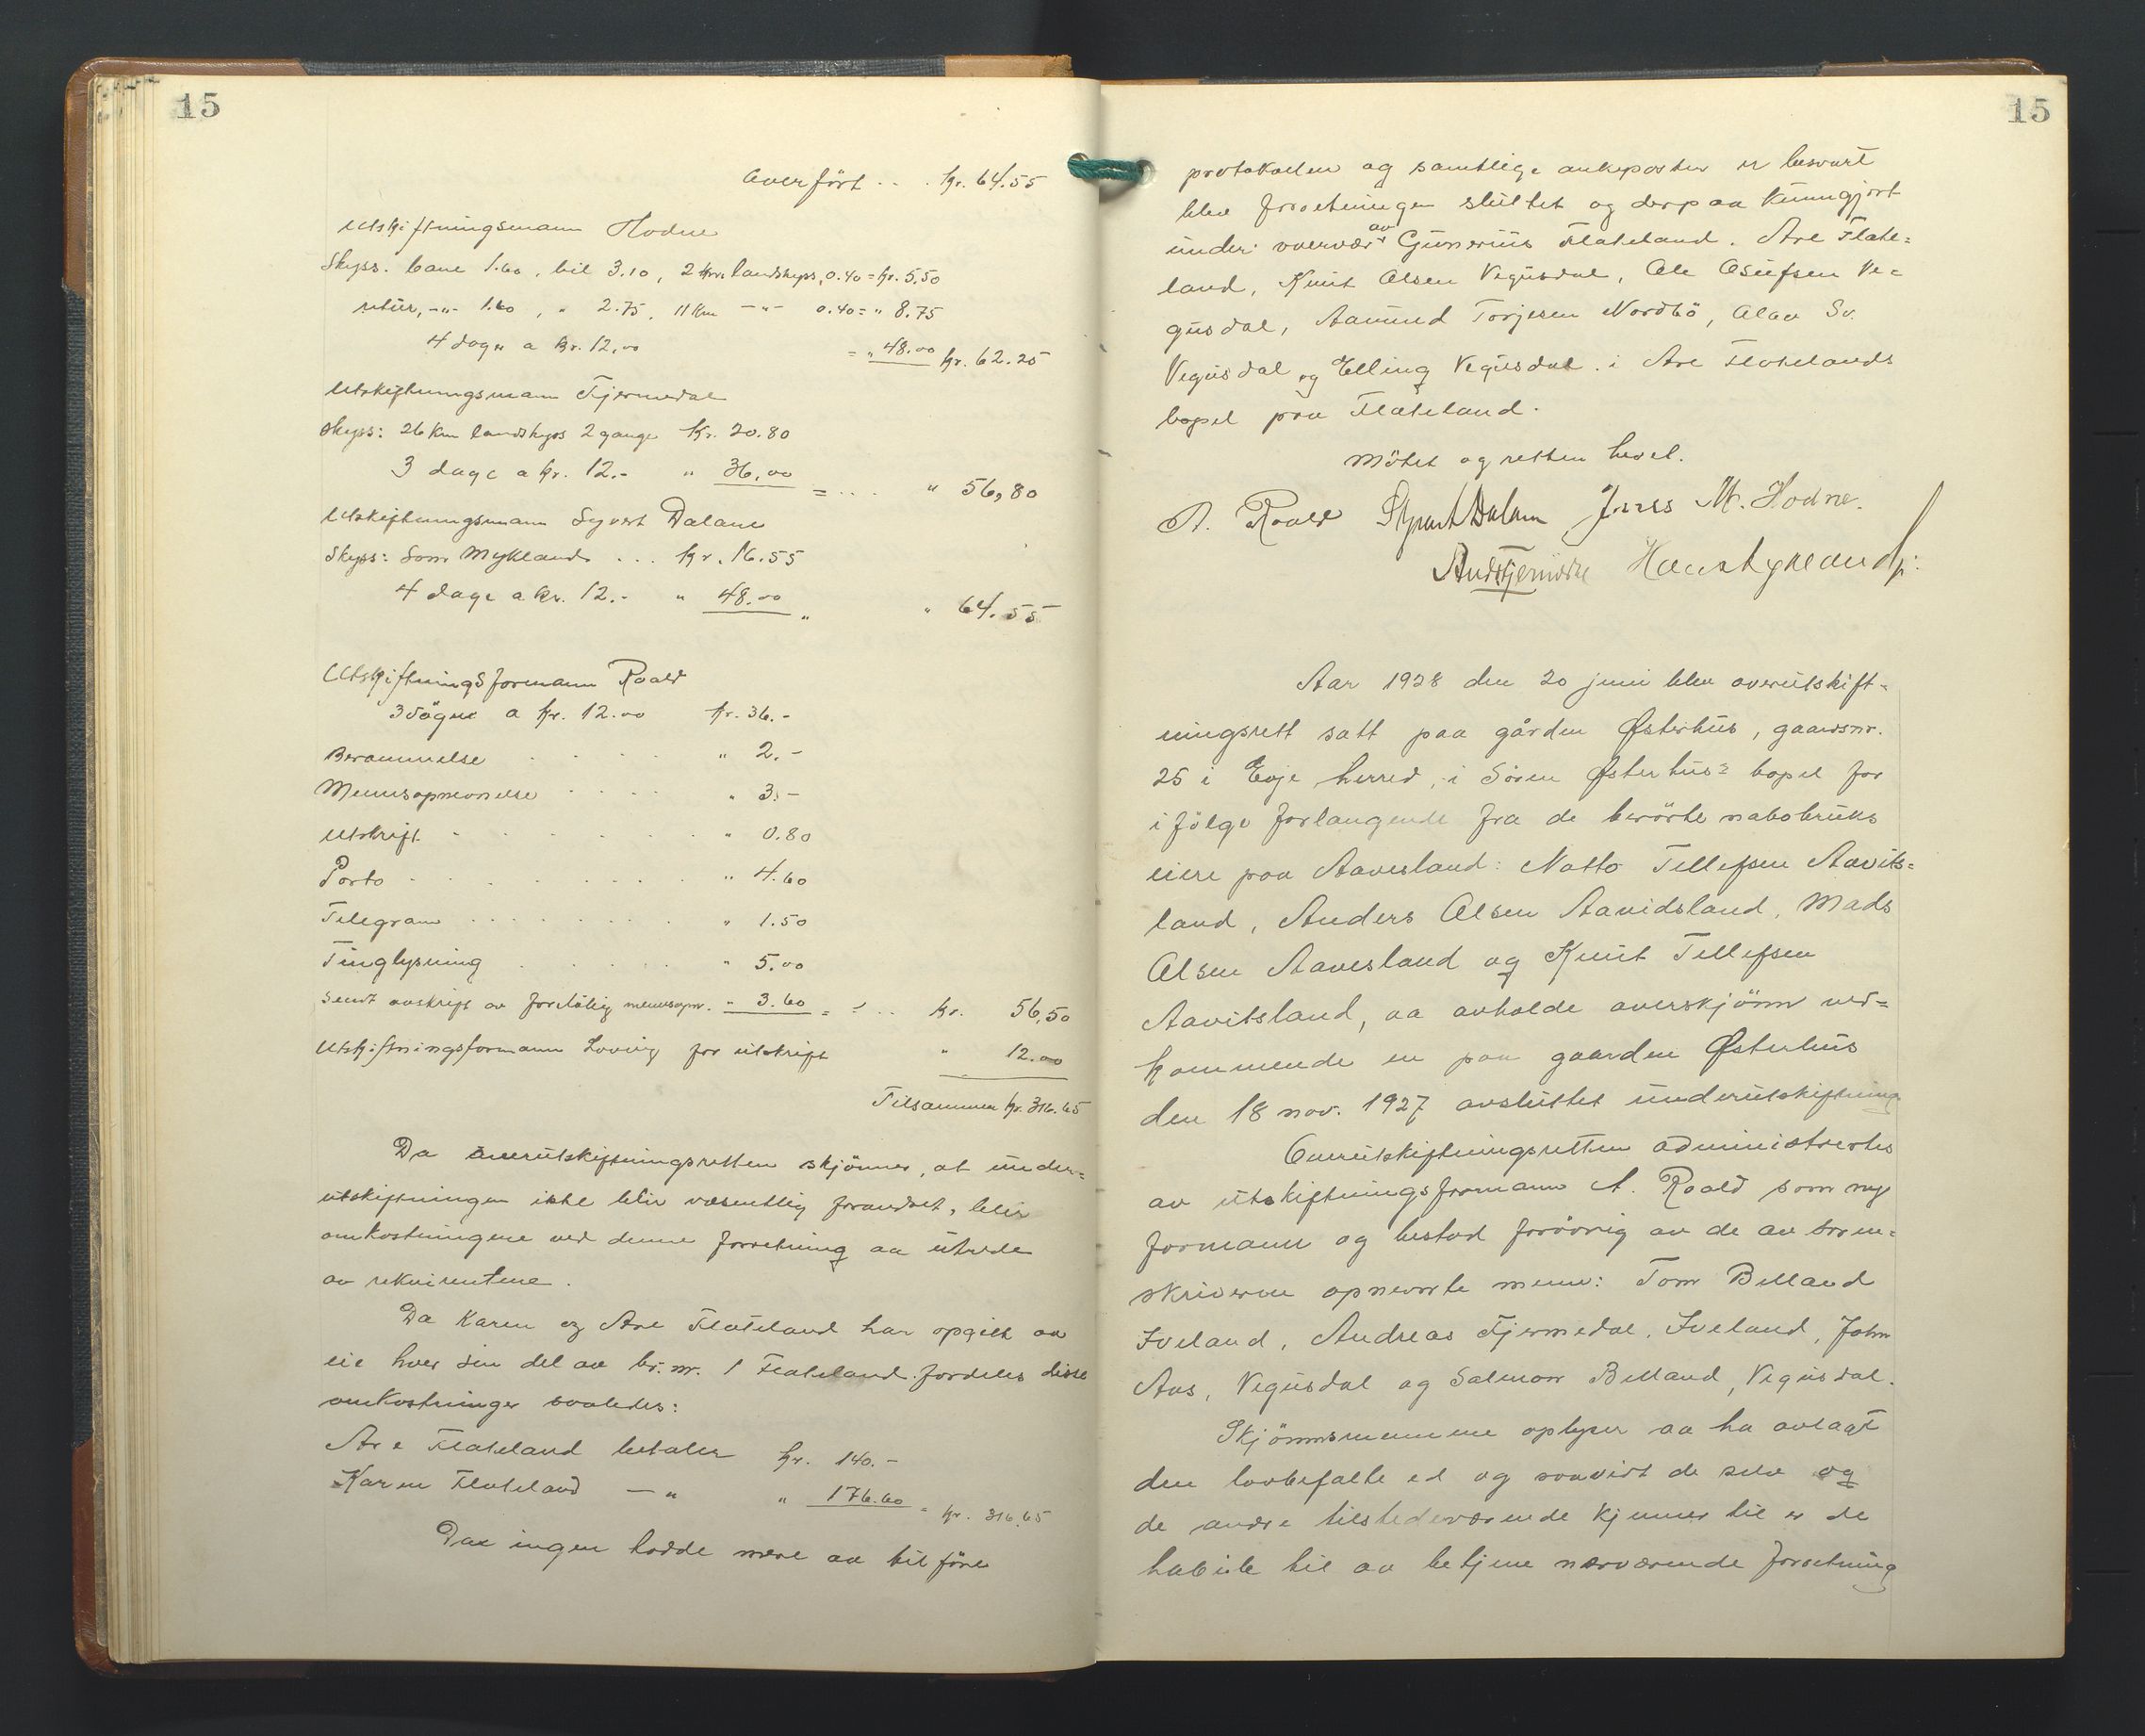 15
Overført . . . kr. 64.55
Utskiftningsmann Hodne
Skyss. bane 1.60, bil 3.10, 2 km. landskyss, 0.40 = kr. 5.50
retur, -"- 1.60, " 2.75, 11 km -"- 0.40 = " 8.75
4 dager a kr. 12.00 = " 48.00 kr. 62.25
Utskiftningsmann Tjermedal
Skyss: 26 km landskyss 2 gange kr. 20.80
3 dage a kr. 12.- " 36.00 = . . . " 56,80
Utskiftningsmann Syvert Dalane
Skyss: Som Mykland . . . kr. 16.55
4 dage a kr. 12.- " 48.00 " " 64.55
Utskiftningsformann Roald
3 døgne a kr. 12.00 kr. 36.-
Berammelse . . . . " 2.-
Mennsopnevnelse . . . . " 3.-
Utskrift . . . . . . " 0.80
Porto . . . . . . . " 4.60
Telegram . . . . . . . " 1.50
Tinglysning . . . . . " 5.00
Sendt avskrift av foreløbig mennsopn. " 3.60 = = . . kr. 56,50
Utskiftningsformann Loving for utskrift " 12.00
Tilsammen kr. 316.65
Da overutskiftningsretten skjønner, at under=
utskiftningen ikke blir væsentlig forandret, blir
omkostningene ved denne forretning aa utrede
av rekvirentene.
Da Karen og Are Flateland har opgitt aa
eie hver sin del av br. nr. 1 Flateland fordeles disse
omkostninger saaledes:
Are Flateland betaler kr. 140.-
Karen Flateland -"- " 176.60 = kr. 316.65
Da ingen hadde mere aa tilføre
15
protokollen og samtlige ankeposter er besvart
blev forretningen sluttet og derpaa kunngjort
under overvær av Gunerius Flateland. Are Flate=
land, Knut Olsen Vegusdal, Ole Osufsen Ve=
gusdal, Aanund Torjesen Nordbö, Olav Sv.
Vegusdal og Elling Vegusdal i Are Flatelands
bopel paa Flateland.
Møtet og retten hevet.
A. Roald Syvert Dalane Jens M. Hodne.
And Tjermedal Hans Mykland
Aar 1928 den 20 juni blev overutskift=
ningsrett satt paa gården Østerhus, gaardsnr.
25 i Evje herred, i Søren Østerhus's bopel for
ifølge forlangende fra de berørte nabobruks
eiere paa Aavesland: Notto Tellefsen Aavits=
land, Anders Olsen Aavidsland, Mads
Olsen Aavesland og Knut Tellefsen
Aavitsland, aa avholde overskjønn ved=
kommende en paa gaarden Østerhus
den 18 nov. 1927 avsluttet underutskiftning
Overutskiftningsretten administrertes
av utskiftningsformann A. Roald som ny
formann og bestod forøvrig av de av soren=
skriveren opnevnte menn: Tom Belland
Iveland, Andreas Tjermedal, Iveland, John
Aas, Vegusdal og Salmon Belland, Vegusdal.
Skjønnsmennene oplyser aa ha avlagt
den lovbefalte ed og saavidt de selv og
de andre tilstedeværende kjenner til er de
habile til aa betjene nærværende forretning